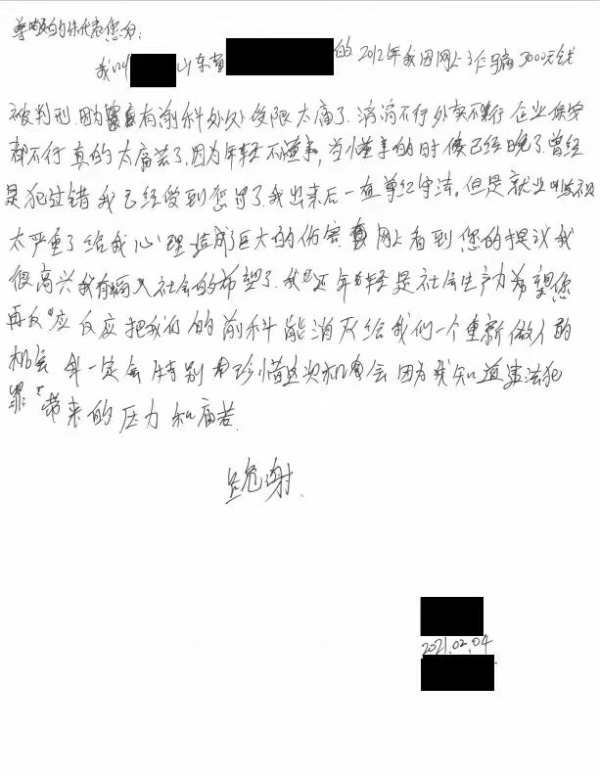 尊敬的朱代表您好:
我叫 山东省 的 2012年我因网上诈骗3000元钱
被判刑.因为有前科处处受限太痛了.滴滴不行外卖不行 企业保安
都不行 真的太痛苦了,因为年轻不懂事,当懂事的时候已经晚了.曾经
是犯过错 我已经受到惩罚了.我出来后一直尊纪守法.但是就业
太严重了给我心理造成了巨大的伤害 网上看到您的提议我
很高兴我有融入社会的希望了.我还年轻是社会生产力希望您
再反应反应把我们的前科能消灭给我们一个重新做人的
机会 我一定会特别珍惜这次机会 因为我知道违法犯
罪带来的压力和痛苦.
跪谢.
2021.02.04